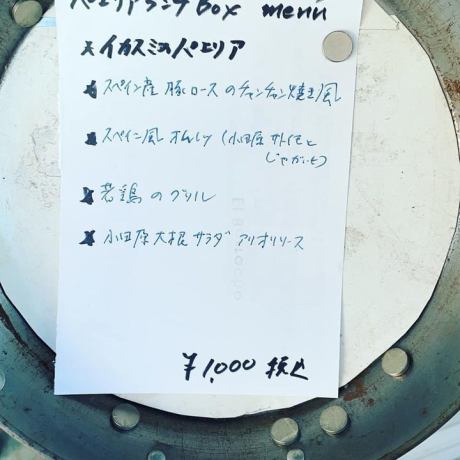 パエリアランチBOX menu
★イカスミのパエリア
★スペイン産豚ロースのチャンチャン焼き風
★スペイン風オムレツ(小田原
じゃがいも)
★若鶏のグリル
★小田原大根サラダ アリオリソース
¥1,000 税込